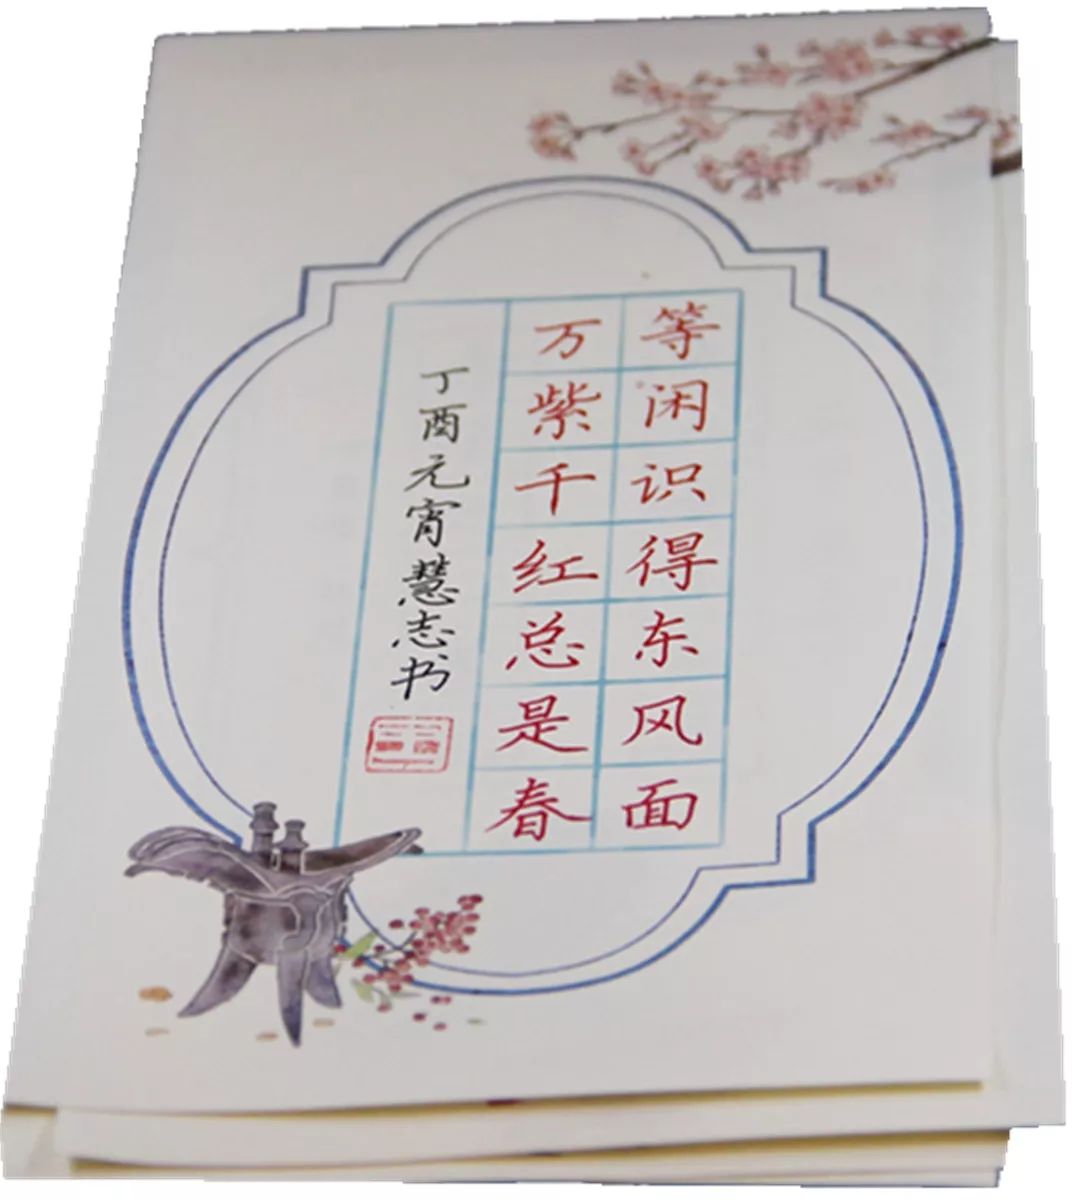 等闲识得东风面
万紫千红总是春
丁酉元宵慧志书